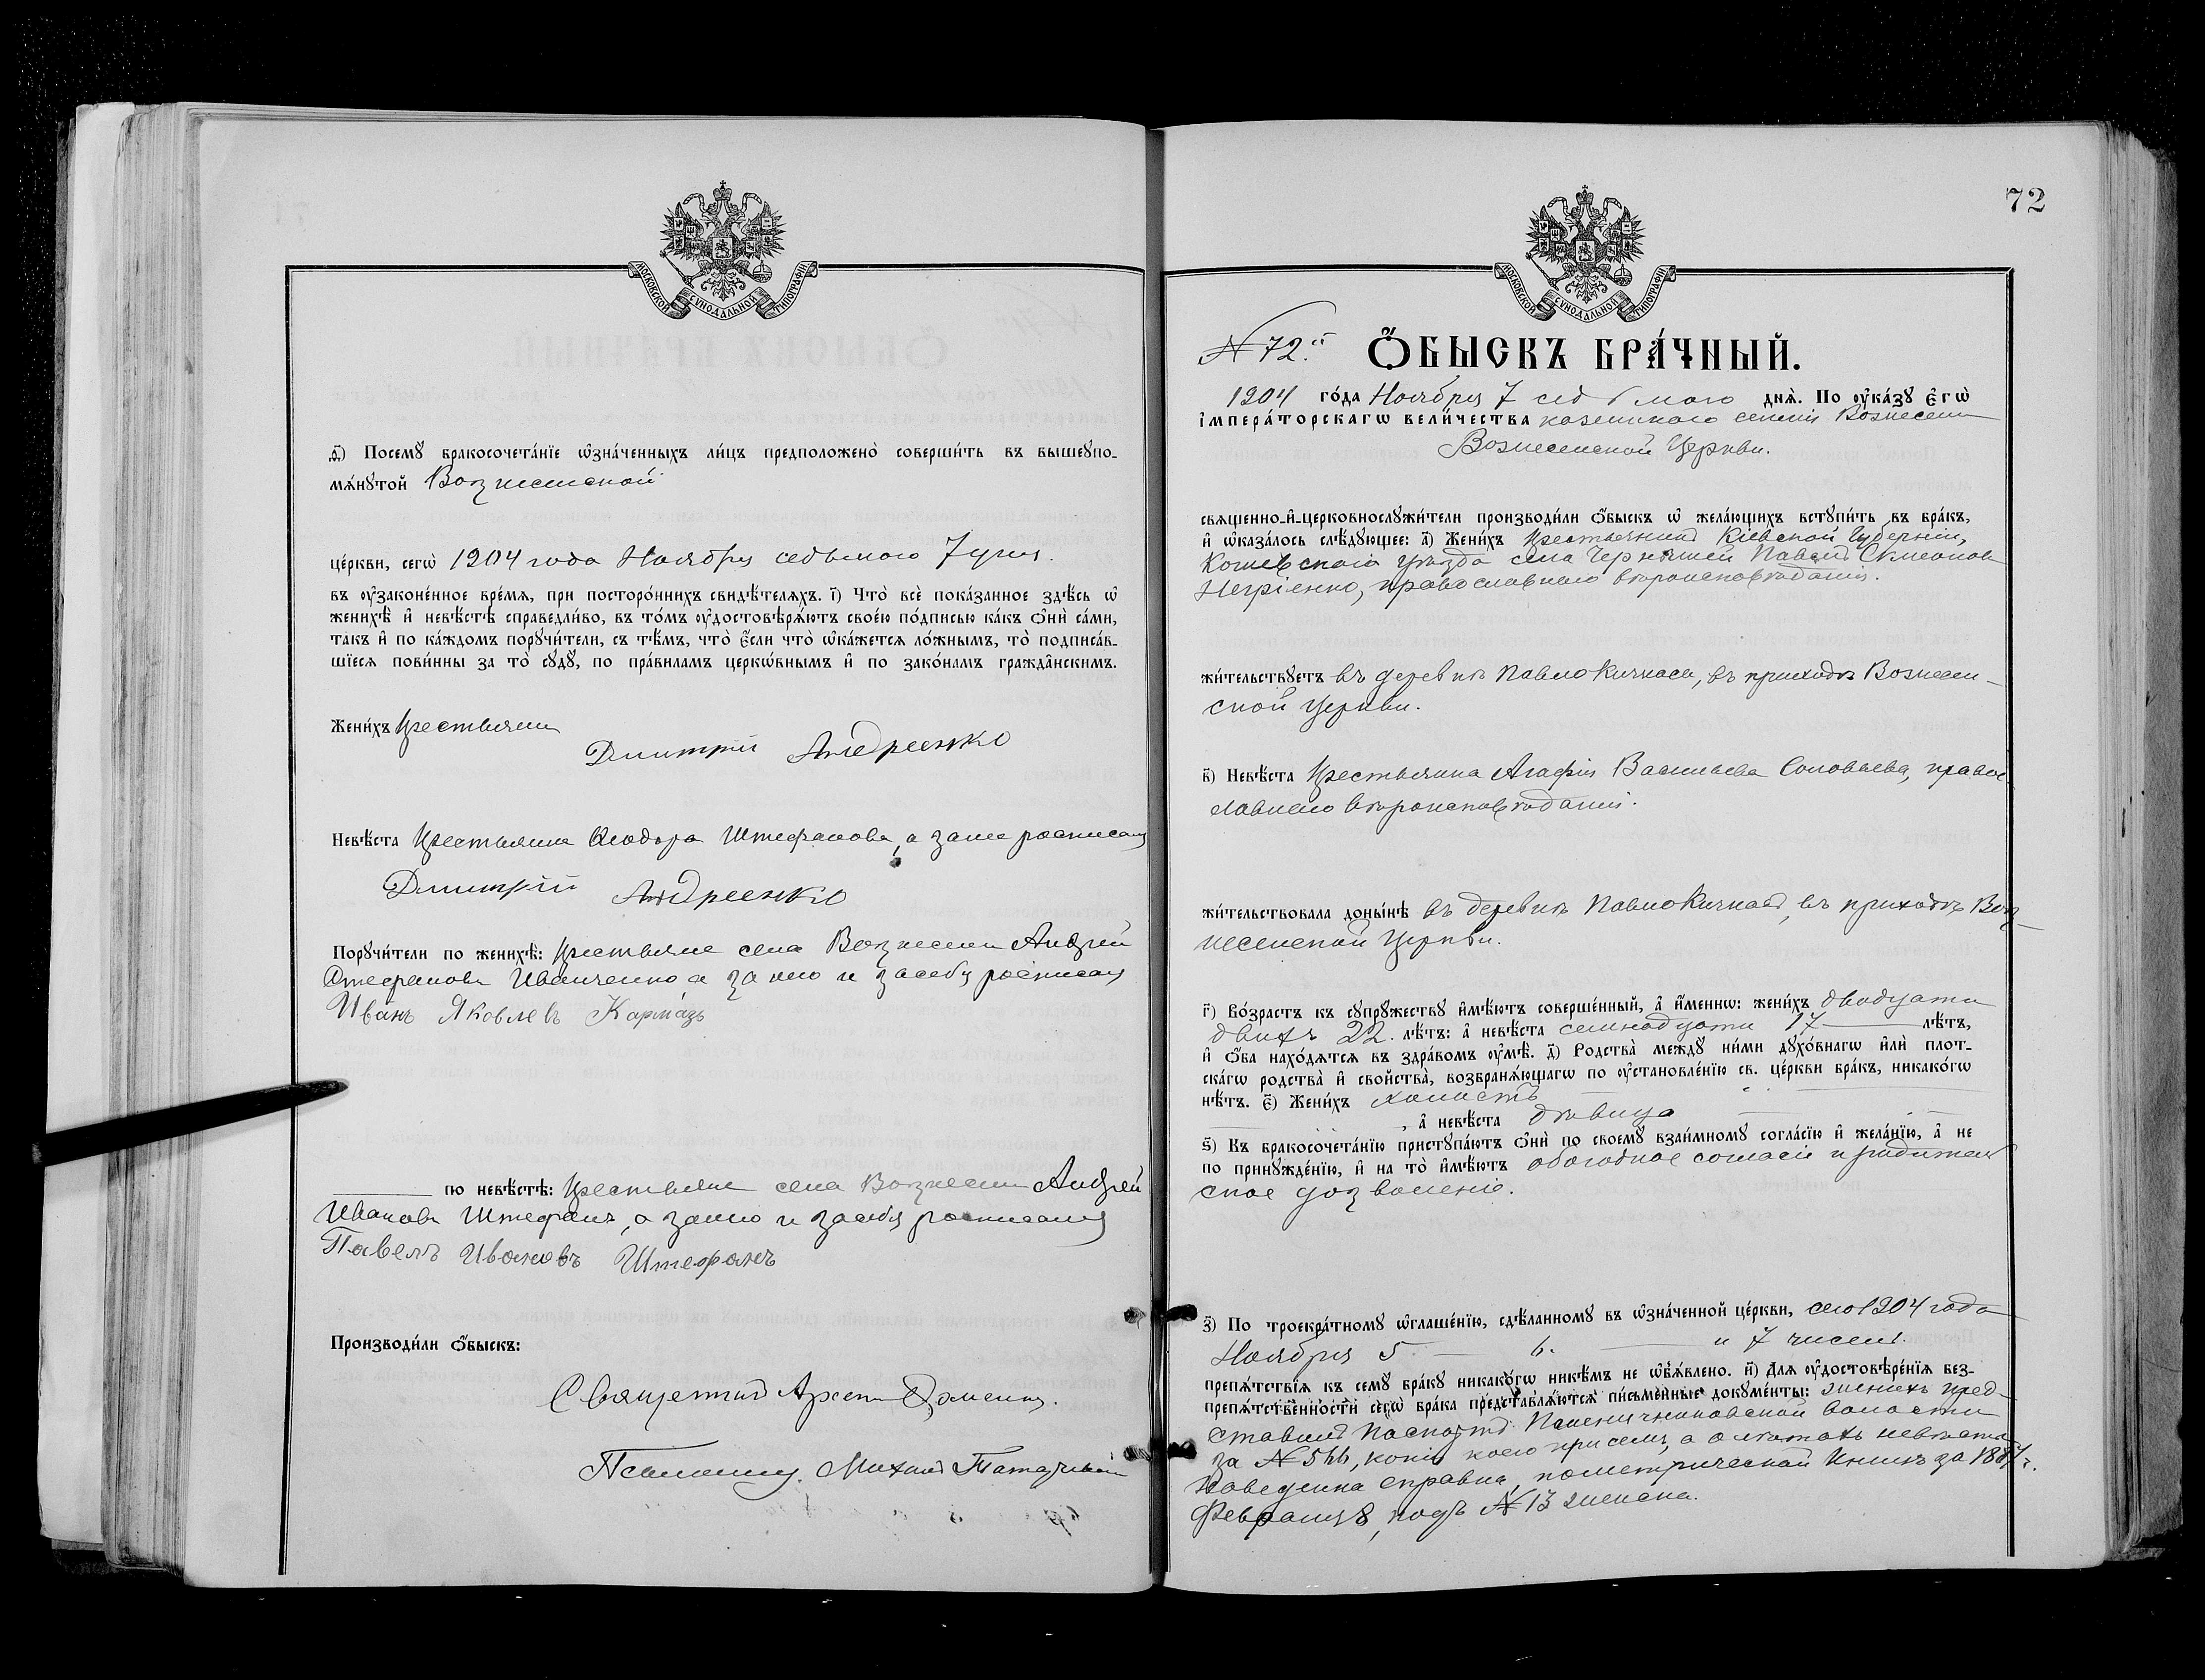 МОСКОВСКОЙ СУНОДАЛЬНОЙ ТИПОГРАФІИ
ѳ҃) Посемꙋ бракосочета́нїе ѡ҆зна́ченныхъ ли́цъ предположено̀ соверши́ть въ вышеꙋпо-
мѧ́нꙋтой Вознесенской
це́ркви, сегѡ̀ 1904 года Ноября седьмого 7 дня.
въ ᲂу҆законе́нное вре́мѧ, при посторо́ннихъ свидѣ́телѧхъ. і҃) Что̀ всѐ пока́занное здѣ́сь ѡ҆
женихѣ̀ и҆ невѣ́стѣ справедли́во, въ то́мъ ᲂу҆достовѣрѧ́ютъ свое́ю по́дписью ка́къ ѻ҆нѝ са́ми,
та́къ и҆ по ка́ждомъ порꙋчи́тели, съ тѣ́мъ, что̀ є҆́сли что̀ ѡ҆ка́жетсѧ ло́жнымъ, то̀ подписа́в-
шїесѧ пови́нны за то̀ сꙋдꙋ̀, по пра́виламъ церкѡ́внымъ и҆ по зако́намъ гражда̂нскимъ.
Жени́хъ крестьянин
Дмитрій Андреенко
Невѣ́ста крестьянка Ѳеодора Штефанова, а за нее росписался
Дмитрій Андреенко
Порꙋчи́тели по женихѣ̀: крестьяне села Вознесенки Андрей
Стефановъ Иванченко а за него и за себя росписался
Иванъ Яковлевъ Кармазь
по невѣ́стѣ: крестьяне села Вознесенки Андрей
Ивановъ Штефанъ, а за него и за себя росписался
Павелъ Ивановъ Штефанъ
Производи́ли ѻ҆́быскъ:
Священникъ
Псаломщ. Михаил
72
МОСКОВСКОЙ СУНОДАЛЬНОЙ ТИПОГРАФІИ
N 72. Ѻ҆́БЫСКЪ БРА́ЧНЫЙ.
1904 го́да Ноября 7 седьмого днѧ̀. По ᲂу҆ка́зꙋ є҆гѡ̀
і҆мпера́торскагѡ вели́чества казеннаго селенія Вознесенки
Вознесенской Церкви.
свѧще́нно-и҆-церковнослꙋжи́тели производи́ли ѻ҆́быскъ ѡ҆ жела́ющихъ встꙋпи́ть въ бра́къ,
и҆ ѡ҆каза́лось слѣ́дꙋющее: а҃) Жени́хъ крестьянинъ Кіевской Губерніи,
уѣзда села Павелъ Симеоновъ
православнаго вѣроисповѣданія.
жи́тельствꙋетъ въ деревнѣ Павло Кичкасъ, въ приходѣ Вознесен-
ской Церкви.
в҃) Невѣ́ста крестьянка Агафія Васильева Соловьева, правос-
лавнаго вѣроисповѣданія.
жи́тельствовала доны́нѣ въ деревнѣ Павло Кичкасъ, въ приходѣ Воз-
несенской Церкви.
г҃) Во́зрастъ къ сꙋпрꙋ́жествꙋ и҆мѣ́ютъ соверше́нный, а҆ и҆́меннѡ: жени́хъ двадцати
двухъ 22. лѣ́тъ: а҆ невѣ́ста семнадцати 17 лѣ́тъ,
и҆ ѻ҆́ба нахо́дѧтсѧ въ здра́вомъ ᲂу҆мѣ̀. д҃) Родства̀ междꙋ̀ ни́ми дꙋхо́внагѡ и҆лѝ плот-
ска́гѡ родства̀ и҆ свойства̀, возбранѧ́ющагѡ по ᲂу҆становле́нїю св. це́ркви бра́къ, никако́гѡ
нѣ́тъ. є҃) Жени́хъ холостъ
, а҆ невѣ́ста дѣвица
ѕ҃) Къ бракосочета́нїю пристꙋпа́ютъ ѻ҆нѝ по своемꙋ̀ взаи́мномꙋ согла́сїю и҆ жела́нїю, а҆ не
по принꙋжде́нїю, и҆ на то̀ и҆мѣ́ютъ обоюдное согласіе и родитель-
ское дозволеніе.
з҃) По троекра́тномꙋ ѡ҆глаше́нїю, сдѣ́ланномꙋ въ ѡ҆зна́ченной це́ркви, сего 1904 года
Ноября 5 — 6. — и 7 чиселъ.
препѧ́тствїѧ къ семꙋ̀ бра́кꙋ никако́гѡ никѣ́мъ не ѡ҆б̾ѧ́влено. и҃) Для ᲂу҆достовѣре́нїѧ без-
препѧ́тственности сегѡ̀ бра́ка представлѧ́ютсѧ пи́сьменные докꙋме́нты: женихъ пред-
ставилъ паспортъ волости
за N 544, копія коего при семъ, а о лѣтахъ невѣсты
наведена справка, по метрической книгѣ за 1887 г.
Февраля 8, подъ N 13 женска.